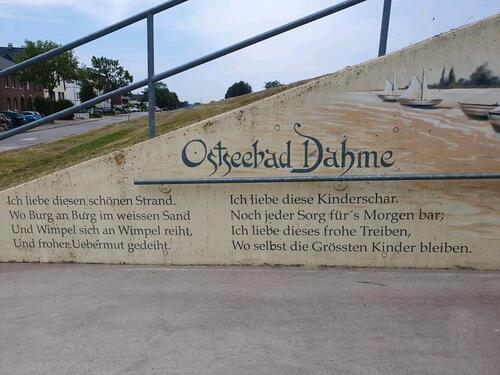 Ostseebad Dahme
Ich liebe diesen schönen Strand.
Wo Burg an Burg im weissen Sand
Und Wimpel sich an Wimpel reiht,
Und froher Uebermut gedeiht.
Ich liebe diese Kinderschar.
Noch jeder Sorg für´s Morgen bar;
Ich liebe dieses frohe Treiben,
Wo selbst die Grössten Kinder bleiben.